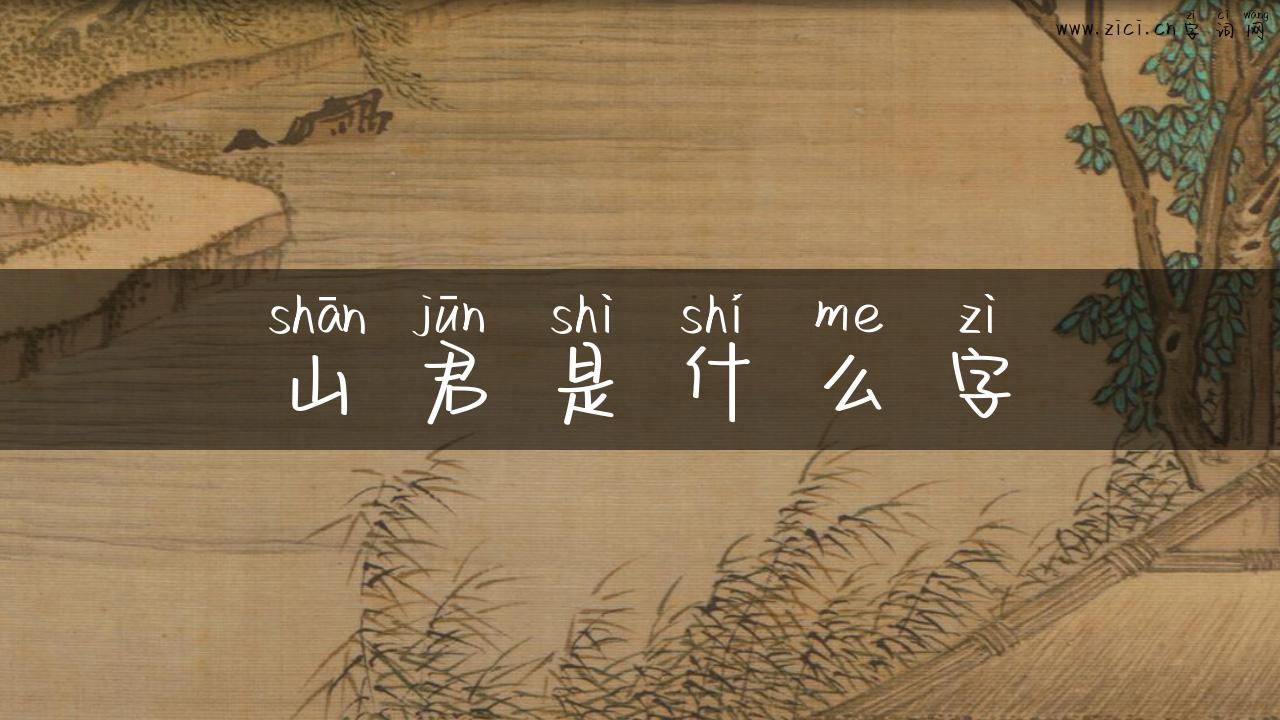 zì cí wǎng
www.zici.cn字词网
shān jūn shì shí me zì
山君是什么字